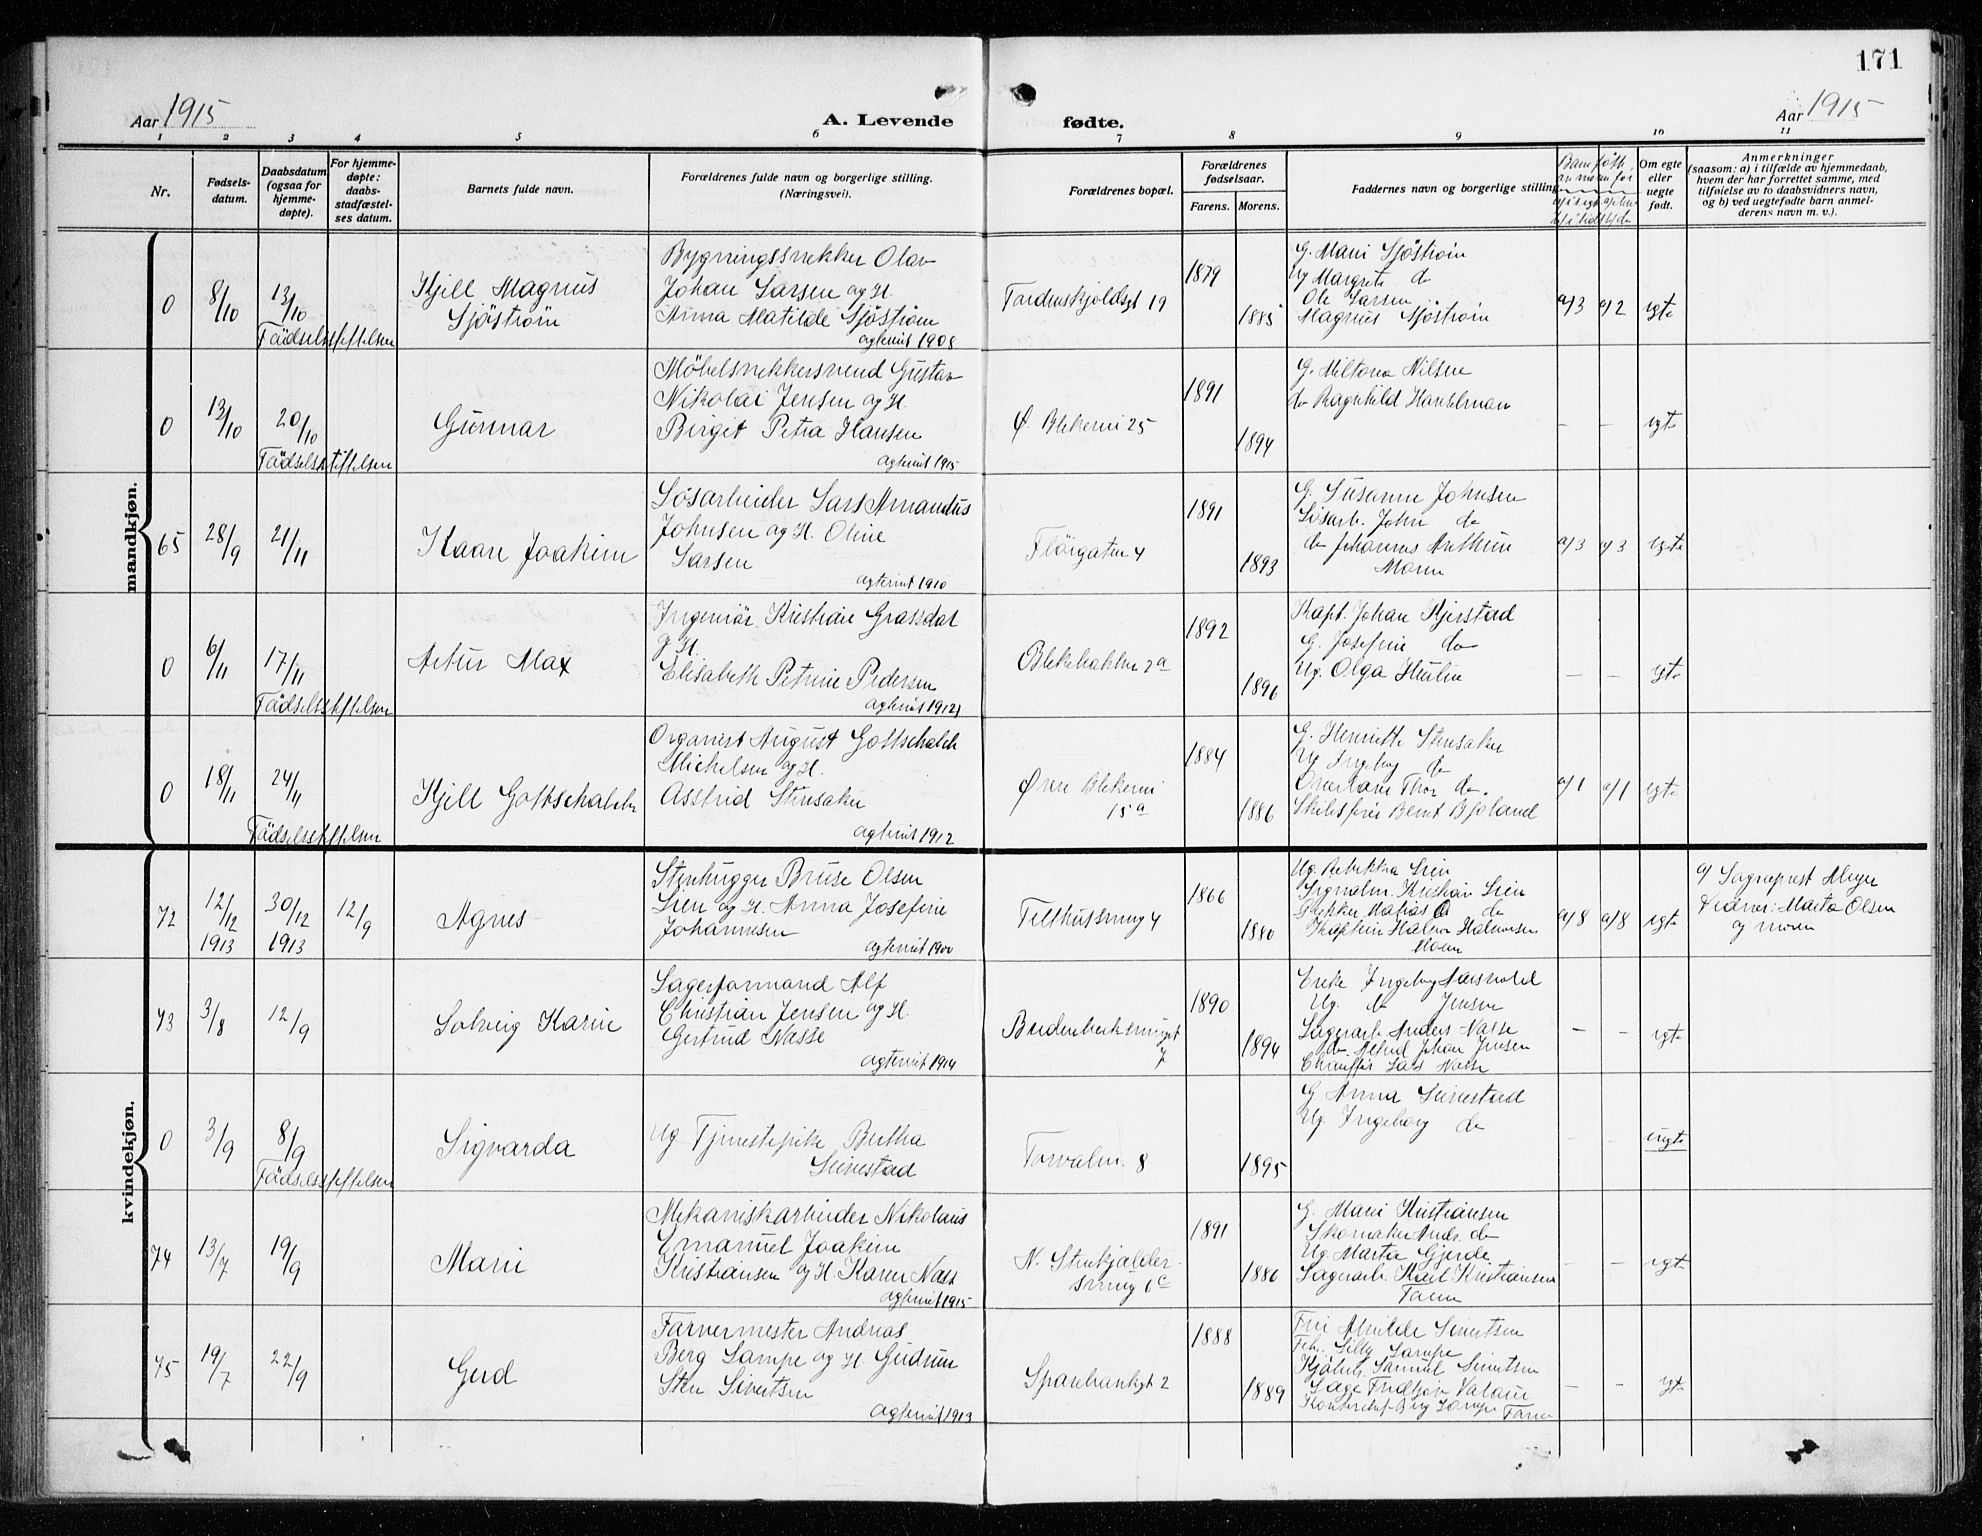 171
Aar 1915
A. Levende fødte.
Aar 1915
1 2 3 4 5 6 7 8 9 10 11
Nr.
Fødsels-
datum.
Daabsdatum
(ogsaa for
hjemme-
døpte).
For hjemme-
døpte:
daabs-
stadfæstel-
ses datum.
Barnets fulde navn.
Forældrenes fulde navn og borgerlige stilling.
(Næringsvei).
Forældrenes bopæl.
Forældrenes
fødselsaar.
Farens. Morens.
Faddernes navn og borgerlige stilling
Om egte
eller
uegte
født.
Anmerkninger
(saasom: a) i tilfælde av hjemmedaab,
hvem der har forrettet samme, med
tilføielse av to daabsvidners navn,
og b) ved uegtefødte barn anmel-
derens navn m. v.).
maandkjøn.
0 8/10 13/10
Födselsstiftelsen
Kjell Magnus
Sjöström
Bygningssnekker Olav
Johan Larsen og H.
Anna Matilde Sjöström
agteviet 1908
Tordenskjoldsgt 19
1879
1885
G. Marie Sjöström
Ug Margrete do
Ole Larsen
Magnus Sjöström
a/3 a/2 egte
0 13/10 20/10
Födselsstiftelsen
Gunnar
Møbelsnekkersvend Gustav
Nikolai Jensen og H.
Birget Petra Hansen
agteviet 1915
Ø. Blekevei 25
1891
1894
G. Miltona Nilsen
do Ragnhild Hanselman
– – egte
65 28/9 21/11
Kaare Joakim
Løsarbeider Lars Amandus
Johnsen og H. Oline
Larsen
agteviet 1910
Fløigaten 4
1891
1893
G. Susanne Johnsen
Løsarb. John do
do Johannes Arthur
Moren
a/3 a/3 egte
0 6/11 17/11
Födselsstiftelsen
Artur Max
Ingeniör Kristian Grassdal
og H.
Elisabeth Petrine Pedersen
agteviet 1912
Blekebakken 2a
1892
1896
Kapt. Johan Kjerstad
G. Josefine do
Ug. Olga
– – egte
0 18/11 24/11
Födselsstiftelsen
Kjell Gottschalck
Organist August Gottschalck
Michelsen og H.
Asstrid Stensaker
agteviet 1912
Øvre Blekevei
15a
1884
1886
G. Henriette Stensaker
Ug Ingeborg do
Thor do.
Bernt Bjoland
a/1 a/1 egte
kvindekjøn.
72 12/12 30/12 12/9
1913 1913
Agnes
Stenhugger Bruse Olsen
Lien og H. Anna Josefine
Johannesen
agteviet 1900
Telthussmug 4
1866
1880
Ug. Rebekka Lien
Kristian Lien
Snekker Matias O do
Kaptein Halvor Halvorsen
Moren
a/8 a/8 egte
a/ Sogneprest Meyer
Vidner: Marta Olsen
og moren
73 3/8 12/9
Solveig Karin
Lagerformand Alf
Christian Jensen og H.
Gertrud Nasse
agteviet 1914
7
1890
1894
Enke Ingeborg
Ug. do Jensen
Lagerarb. Anders Nasse
do. Alfred Johan Jensen
Chauffør Lars Nasse
– – egte
0 3/9 8/9
Födselsstiftelsen
Sigvarda
Ug Tjenestepike Bertha
Seivestad
Torvalm. 8
1895
G Anna Seivestad
Ug. Ingeborg do
– – uegte
74 13/7 19/9
Marie
Mekaniskarbeider Nikolaus
Emanuel Joakim
Kristiansen og H. Karen Næss
agteviet 1915
N. Stenkjelder-
smug 6c
1891
1886
G. Marie Kristiansen
Skomaker Ands. do
Ug. Marta Gjerde
Lagerarb. Karl Kristiansen
Faren
– – egte
75 19/7 22/9
Gerd
Farvermester Andreas
Berg Lampe og H. Gudrun
Sten Sivertsen
agteviet 1913
Sparebankgt 2
1888
1889
Alvilde Sivertsen
Frk. Silly Lampe
Kjøbm. Samuel Sivertsen
Fridtjov Valaur
Berg Lampe Faren
– – egte